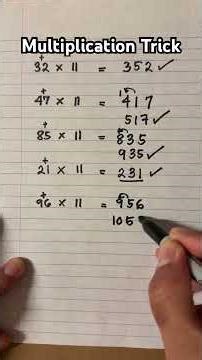 Multiplication Trick
+
32 × 11 = 352 ✓
+ 1
47 × 11 = 417
517 ✓
+
85 × 11 = 835
935 ✓
+
21 × 11 = 231 ✓
+
96 × 11 = 956
105